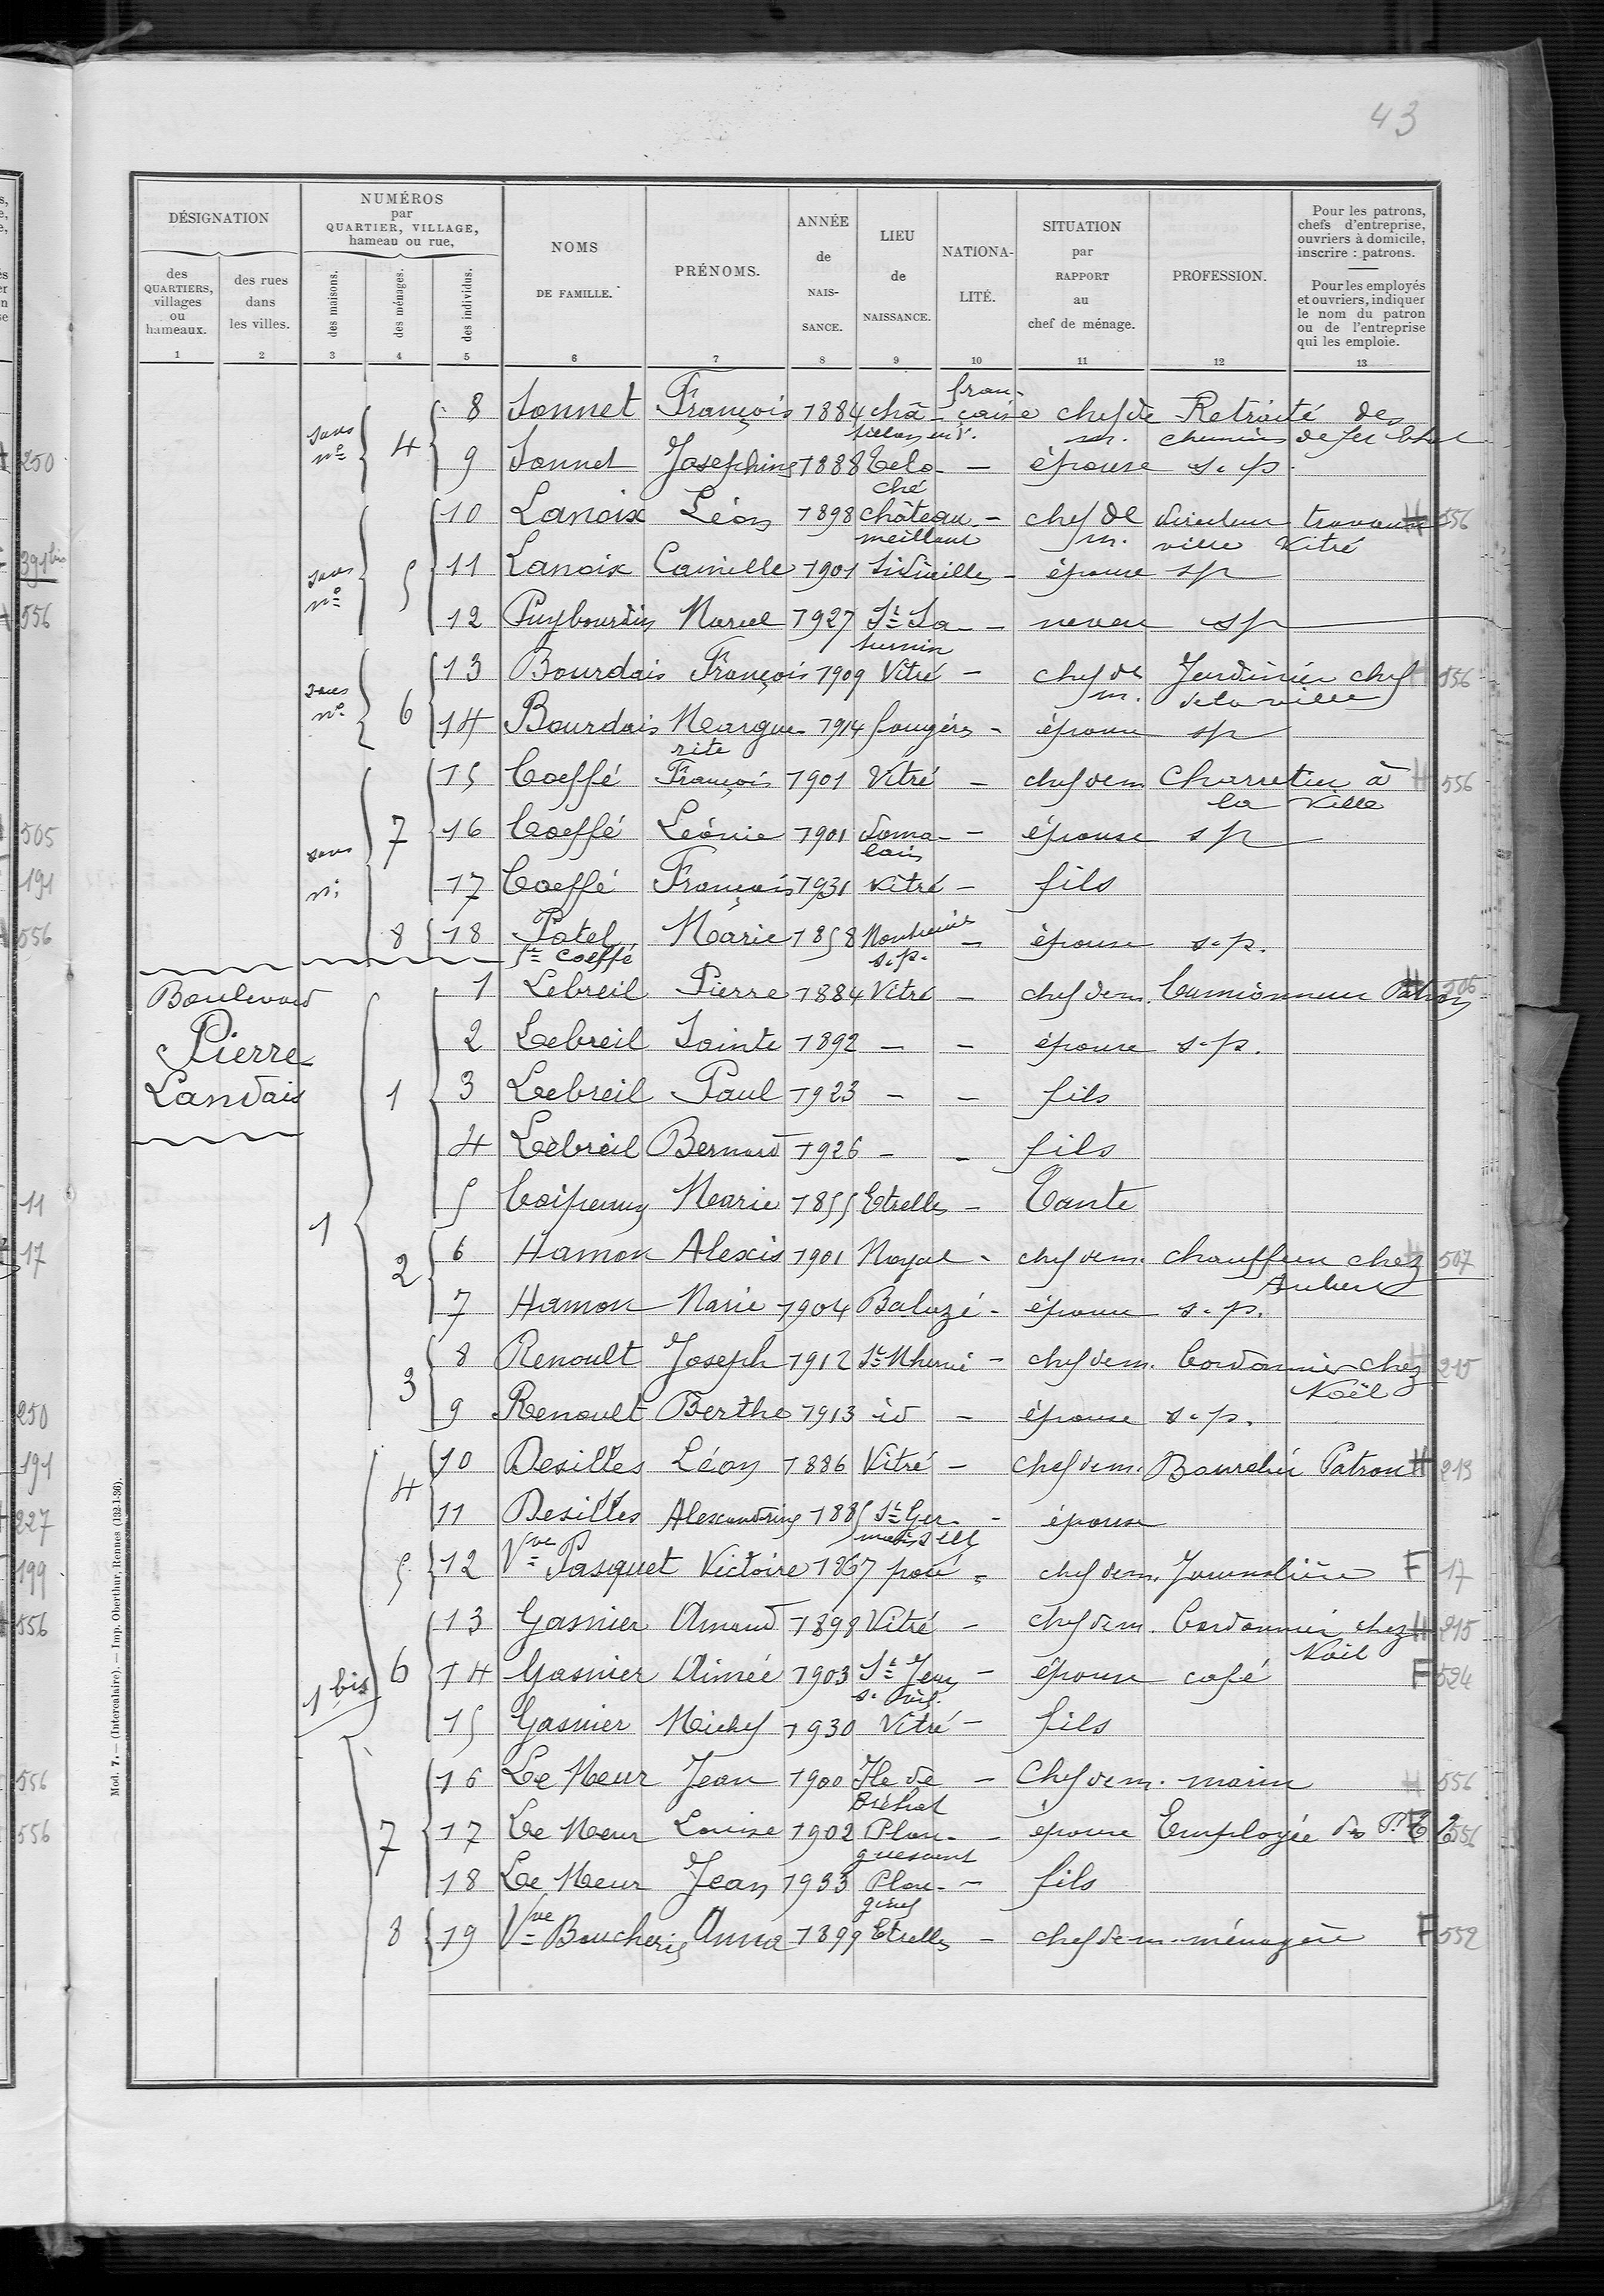 43
DÉSIGNATION
NUMÉROS par QUARTIER, VILLAGE, hameau ou rue,
NOMS DE FAMILLE.
PRÉNOMS.
ANNÉE de NAIS- SANCE.
LIEU de NAISSANCE.
NATIONA- LITÉ.
SITUATION par RAPPORT au chef de ménage.
PROFESSION.
Pour les patrons, chefs d'entreprise, ouvriers à domicile, inscrire : patrons.
Pour les employés et ouvriers, indiquer le nom du patron ou de l'entreprise qui les emploie.
des QUARTIERS, villages ou hameaux.
des rues dans les villes.
des maisons.
des ménages.
des individus.
1 2 3 4 5 6 7 8 9 10 11 12 13
sans nº 4 8 Sonnet François 1884 Châ- tillon en V. fran- çaise chef de m. Retraité des chemins de fer Etat
9 Sonnet Joséphine 1888 Telo- ché - épouse s. p.
sans nº 5 10 Lanoix Léon 1898 château meillant - chef de m. directeur travaux ville Vitré H 556
11 Lanoix Camille 1901 - épouse sp
12 Puybourdin Marcel 1927 St Sa turnin - neveu sp
sans nº 6 13 Bourdais François 1909 Vitré - chef de m. Jardinier chef de la ville H 556
14 Bourdais Margue rite 1914 fougères - épouse sp
sans nº 7 15 Coeffé François 1901 Vitré - chef de m Charretier à la Ville H 556
16 Coeffé Léonie 1901 Doma- lain - épouse sp
17 Coeffé François 1931 Vitré - fils
8 18 Patel Fe Coeffé Marie 1858 Montreuil s. p. - épouse s. p.
Boulevard Pierre Landais
1 1 1 Lebreil Pierre 1884 Vitré - chef de m. Camionneur Patron H
2 Lebreil Sainte 1892 - - épouse s. p.
3 Lebreil Paul 1923 - - fils
4 Lebreil Bernard 1926 - - fils
5 Marie 1855 Etrelles - Tante
2 6 Hamon Alexis 1901 Noyal - chef de m. chauffeur chez Aubert 507
7 Hamon Marie 1904 Balazé - épouse s. p.
3 8 Renoult Joseph 1912 St Mhervé - chef de m. Cordonnier chez Noël 215
9 Renoult Berthe 1913 id - épouse s. p.
4 10 Desilles Léon 1886 Vitré - chef de m. Bourrelier Patron H 213
11 Desilles Alexandrine 1885 St Ger- - épouse
5 12 Vve Pasquet Victoire 1867 pocé - chef de m. Journalière F 17
1 bis 6 13 Gasnier Amand 1898 Vitré - chef de m. Cordonnier chez Noël H 215
14 Gasnier Aimée 1903 St Jean s. Vil. - épouse café F 524
15 Gasnier Michel 1930 Vitré - fils
7 16 Le Meur Jean 1900 Ile de Bréhat - Chef de m. marin H 556
17 Le Meur Louise 1902 Plou- guescrant - épouse Employée des P.T.T. 556
18 Le Meur Jean 1933 Plou- - fils
8 19 Vve Boucherie Anna 1899 Etrelles - chef de m. ménagère F 552
Mod. 7. — (Intercalaire). — Imp. Oberthur, Rennes (132-1-36).
250
391 bis
556
505
191
556
11
17
250
191
227
199
556
556
556